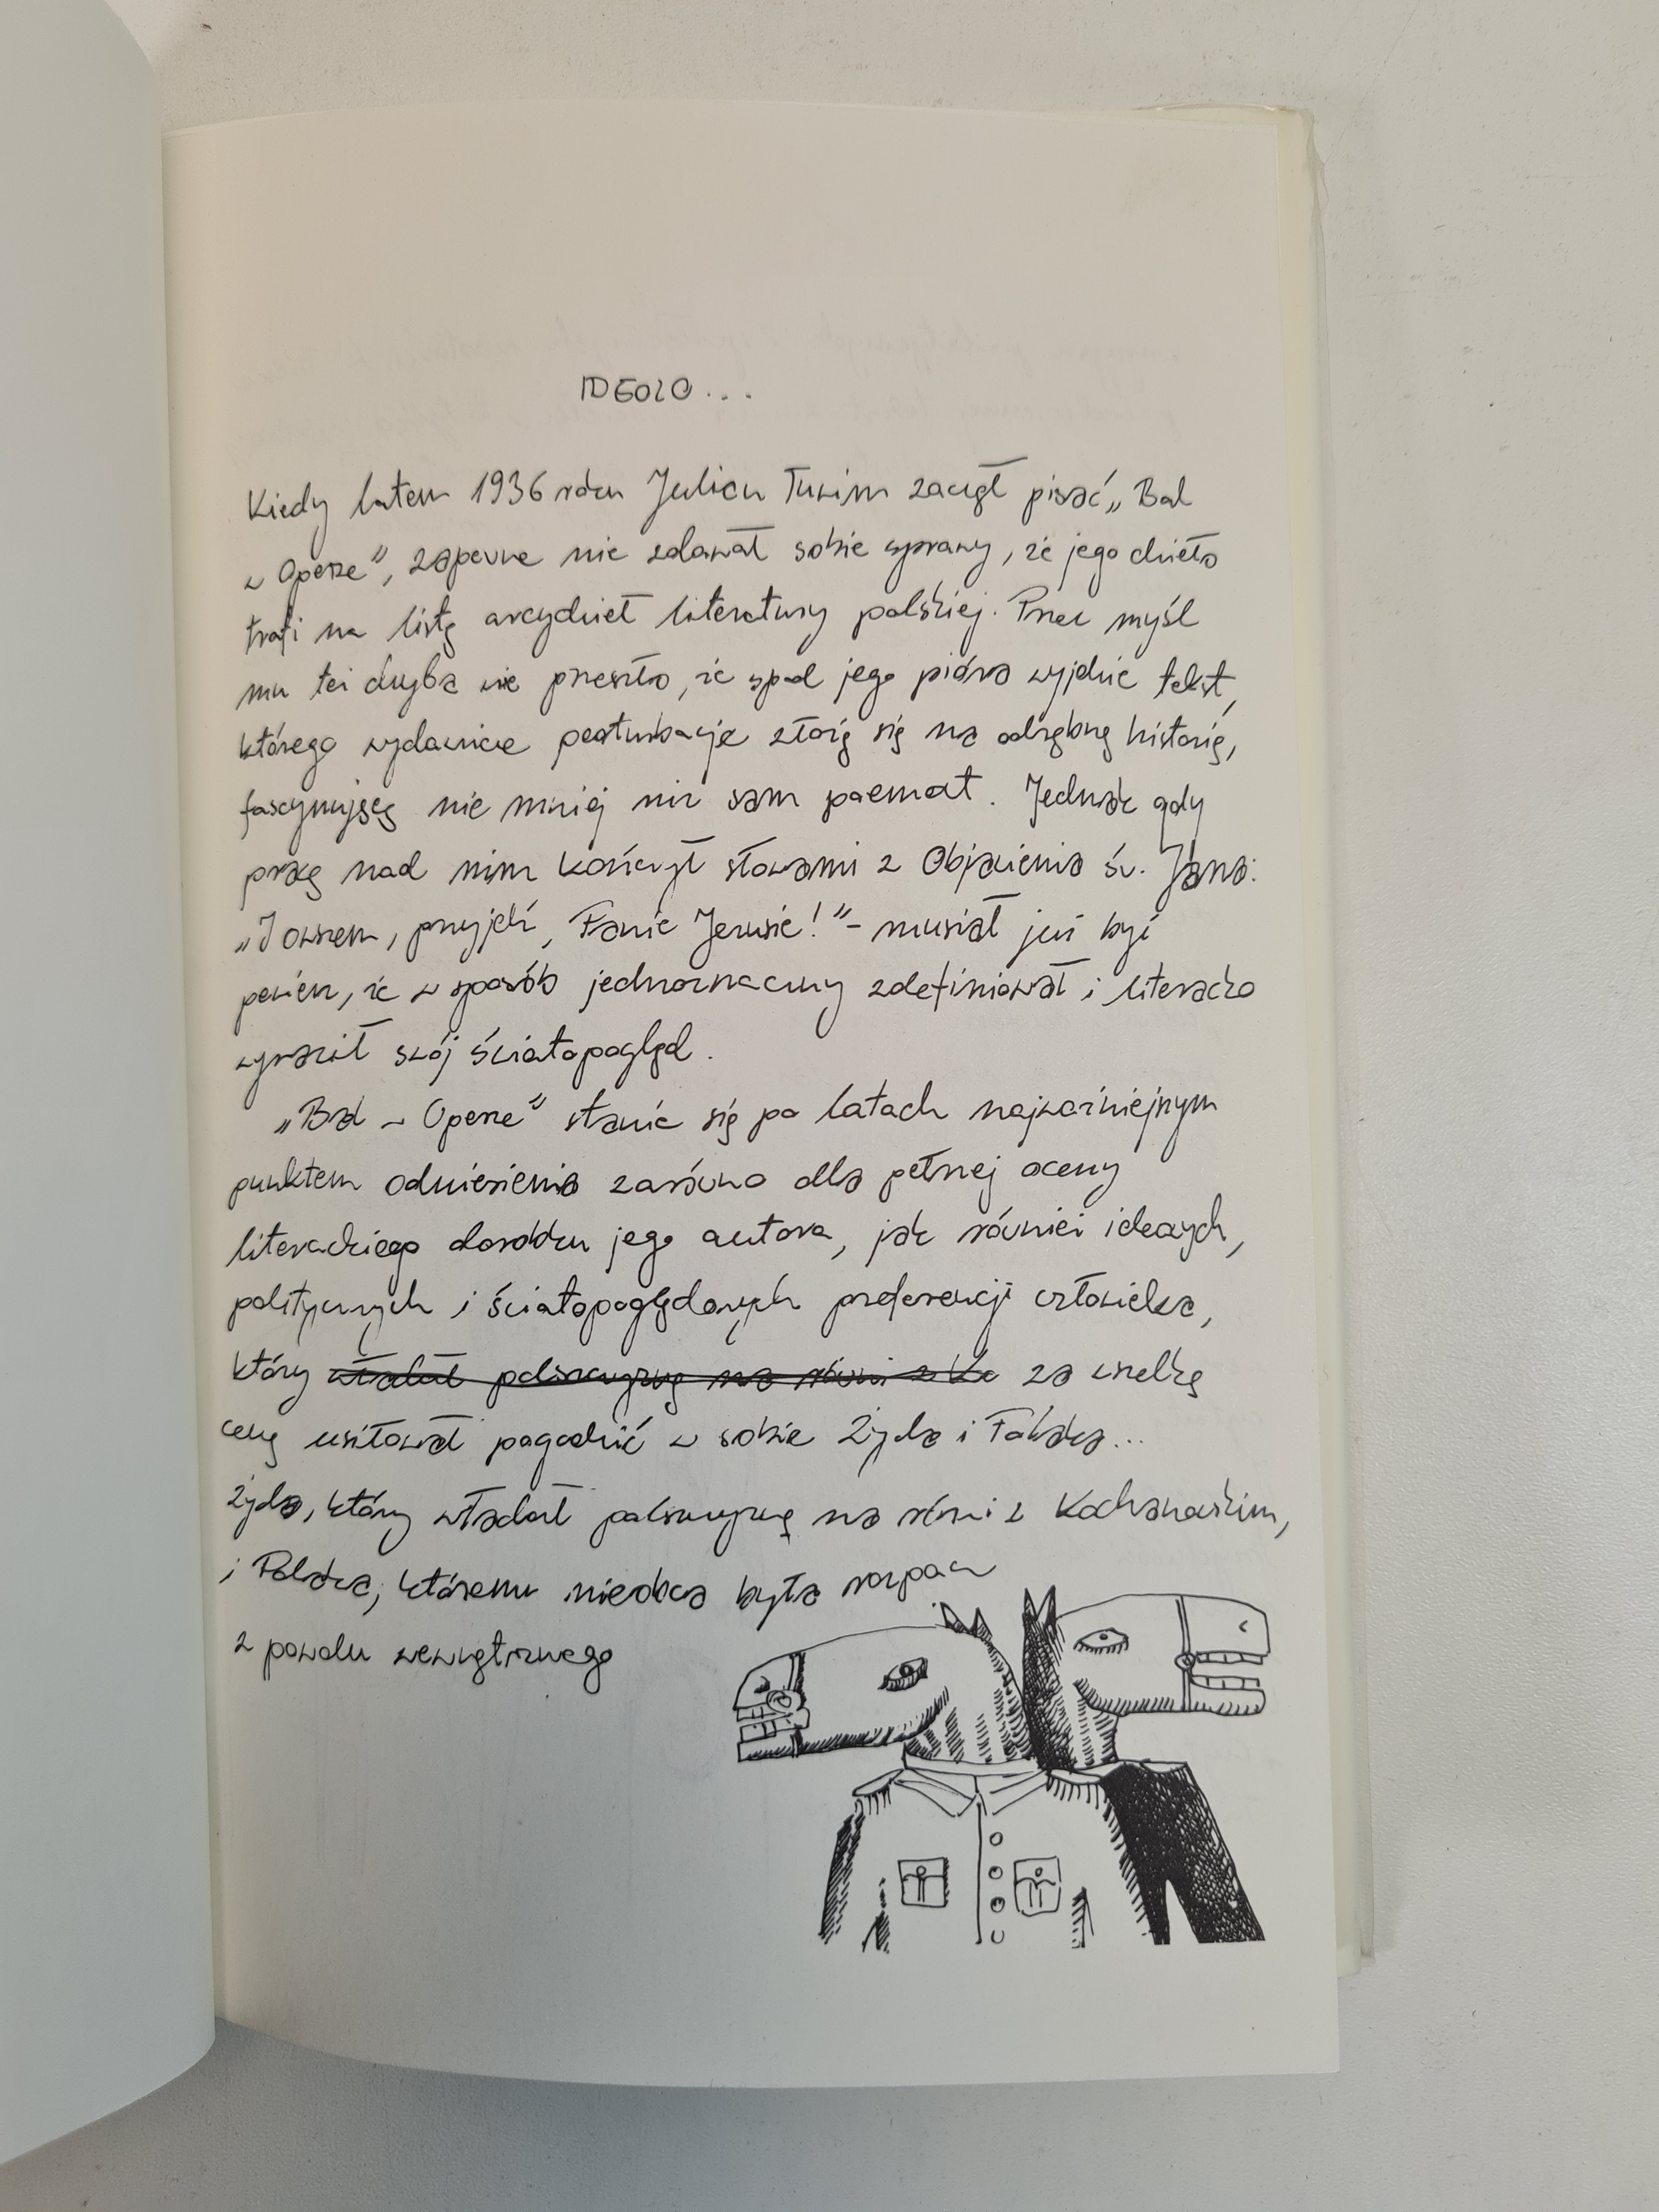 IDEOLO...
Kiedy latem 1936 roku Julian Tuwim zaczął pisać „Bal
w Operze", zapewne nie zdawał sobie sprawy, że jego dzieło
trafi na listę arcydzieł literatury polskiej. Przez myśl
mu też chyba nie przeszło, że spod jego pióra wyjdzie tekst,
którego wydawnicze perturbacje złożą się na odrębną historię,
fascynującą nie mniej niż sam poemat. Jednak gdy
pracę nad nim kończył słowami z Objawienia św. Jana:
„I owszem, przyjdź, Panie Jezusie!" – musiał już być
pewien, że w sposób jednoznaczny zdefiniował i literacko
wyraził swój światopogląd.
„Bal w Operze" stanie się po latach najważniejszym
punktem odniesienia zarówno dla pełnej oceny
literackiego dorobku jego autora, jak również ideowych,
politycznych i światopoglądowych preferencji człowieka,
który władał polszczyzną na równi z Ko za wszelką
cenę usiłował pogodzić w sobie Żyda i Polaka...
Żyda, który władał polszczyzną na równi z Kochanowskim,
i Polaka, któremu nieobca była rozpacz
z powodu wewnętrznego